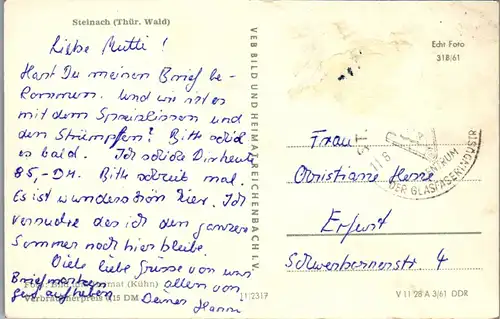 Steinach (Thür. Wald)
Liebe Mutti!
Hast Du meinen Brief be-
kommen. Und wie ist es
mit dem Spreizkissen und
den Strümpfen? Bitte schick
es bald. Ich schicke Dir heute
85,- DM. Bitte schreib mal.
Es ist wunderschön hier. Ich
versuche das ich den ganzen
Sommer noch hier bleibe.
Viele liebe Grüsse von uns
allen von
Deiner Hanni
Briefmarken
gut aufheben
(Kühn)
Verbraucherpreis 0,15 DM
11/2317
VEB BILD UND HEIMAT REICHENBACH I. V.
Echt Foto
318/61
DER GLASFASERINDUSTR
Frau
Christiane Hesse
Erfurt
4
V 11 28 A 3/61 DDR